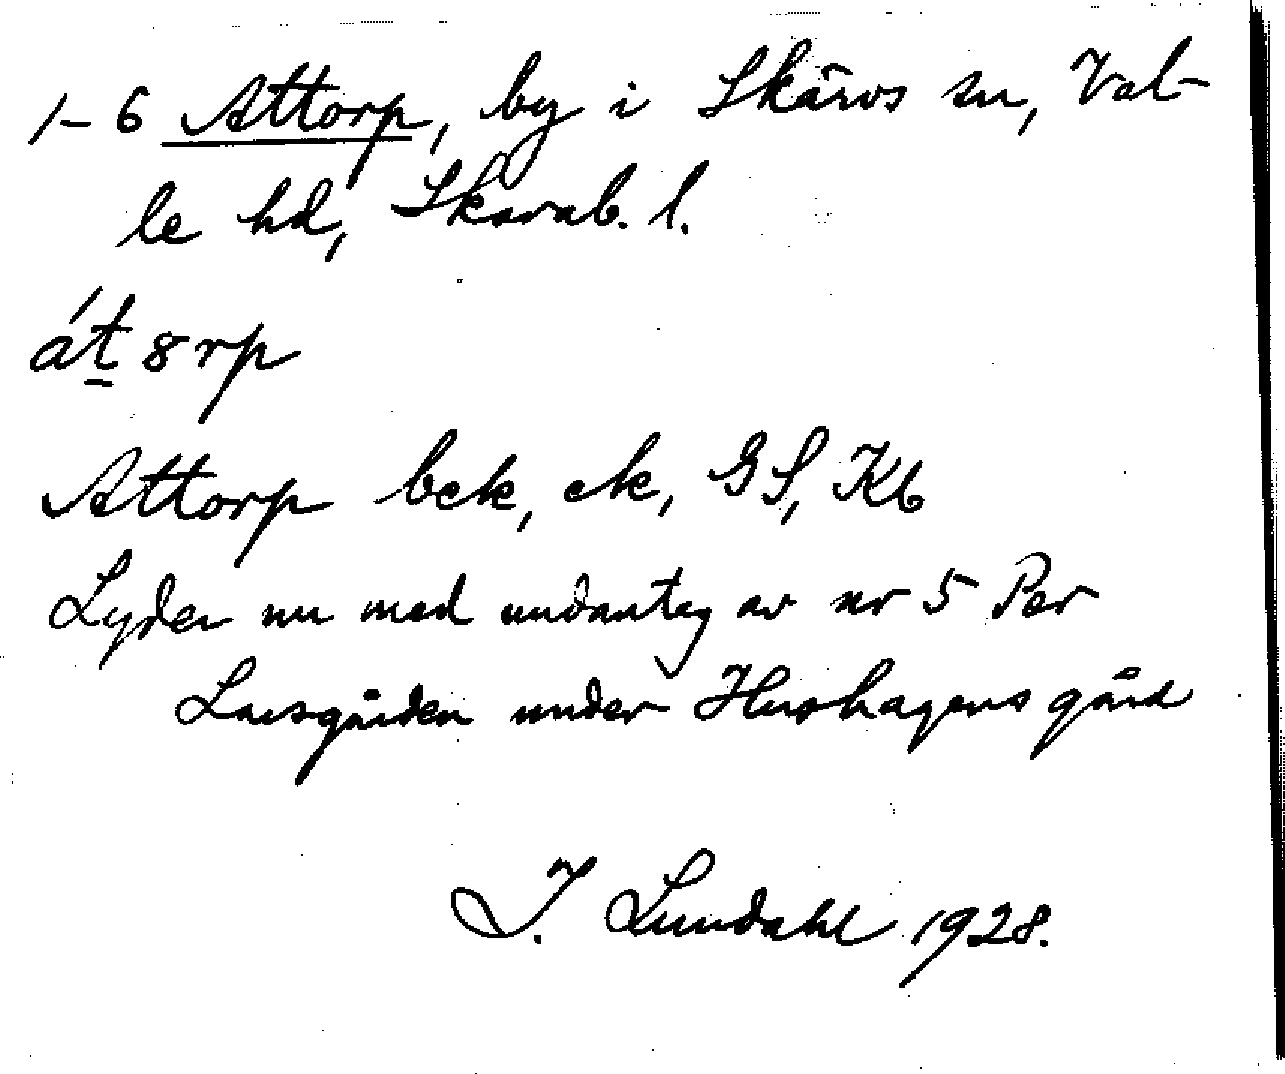 1–6 Attorp, by i Skärvs sn, Val-
le hd, Skarab. l.
át8rp
Attorp bek, ek, GS, Kb
Lyder nu med undantag av nr 5 Per
Larsgården under Hushagens gård
I. Lundahl 1928.